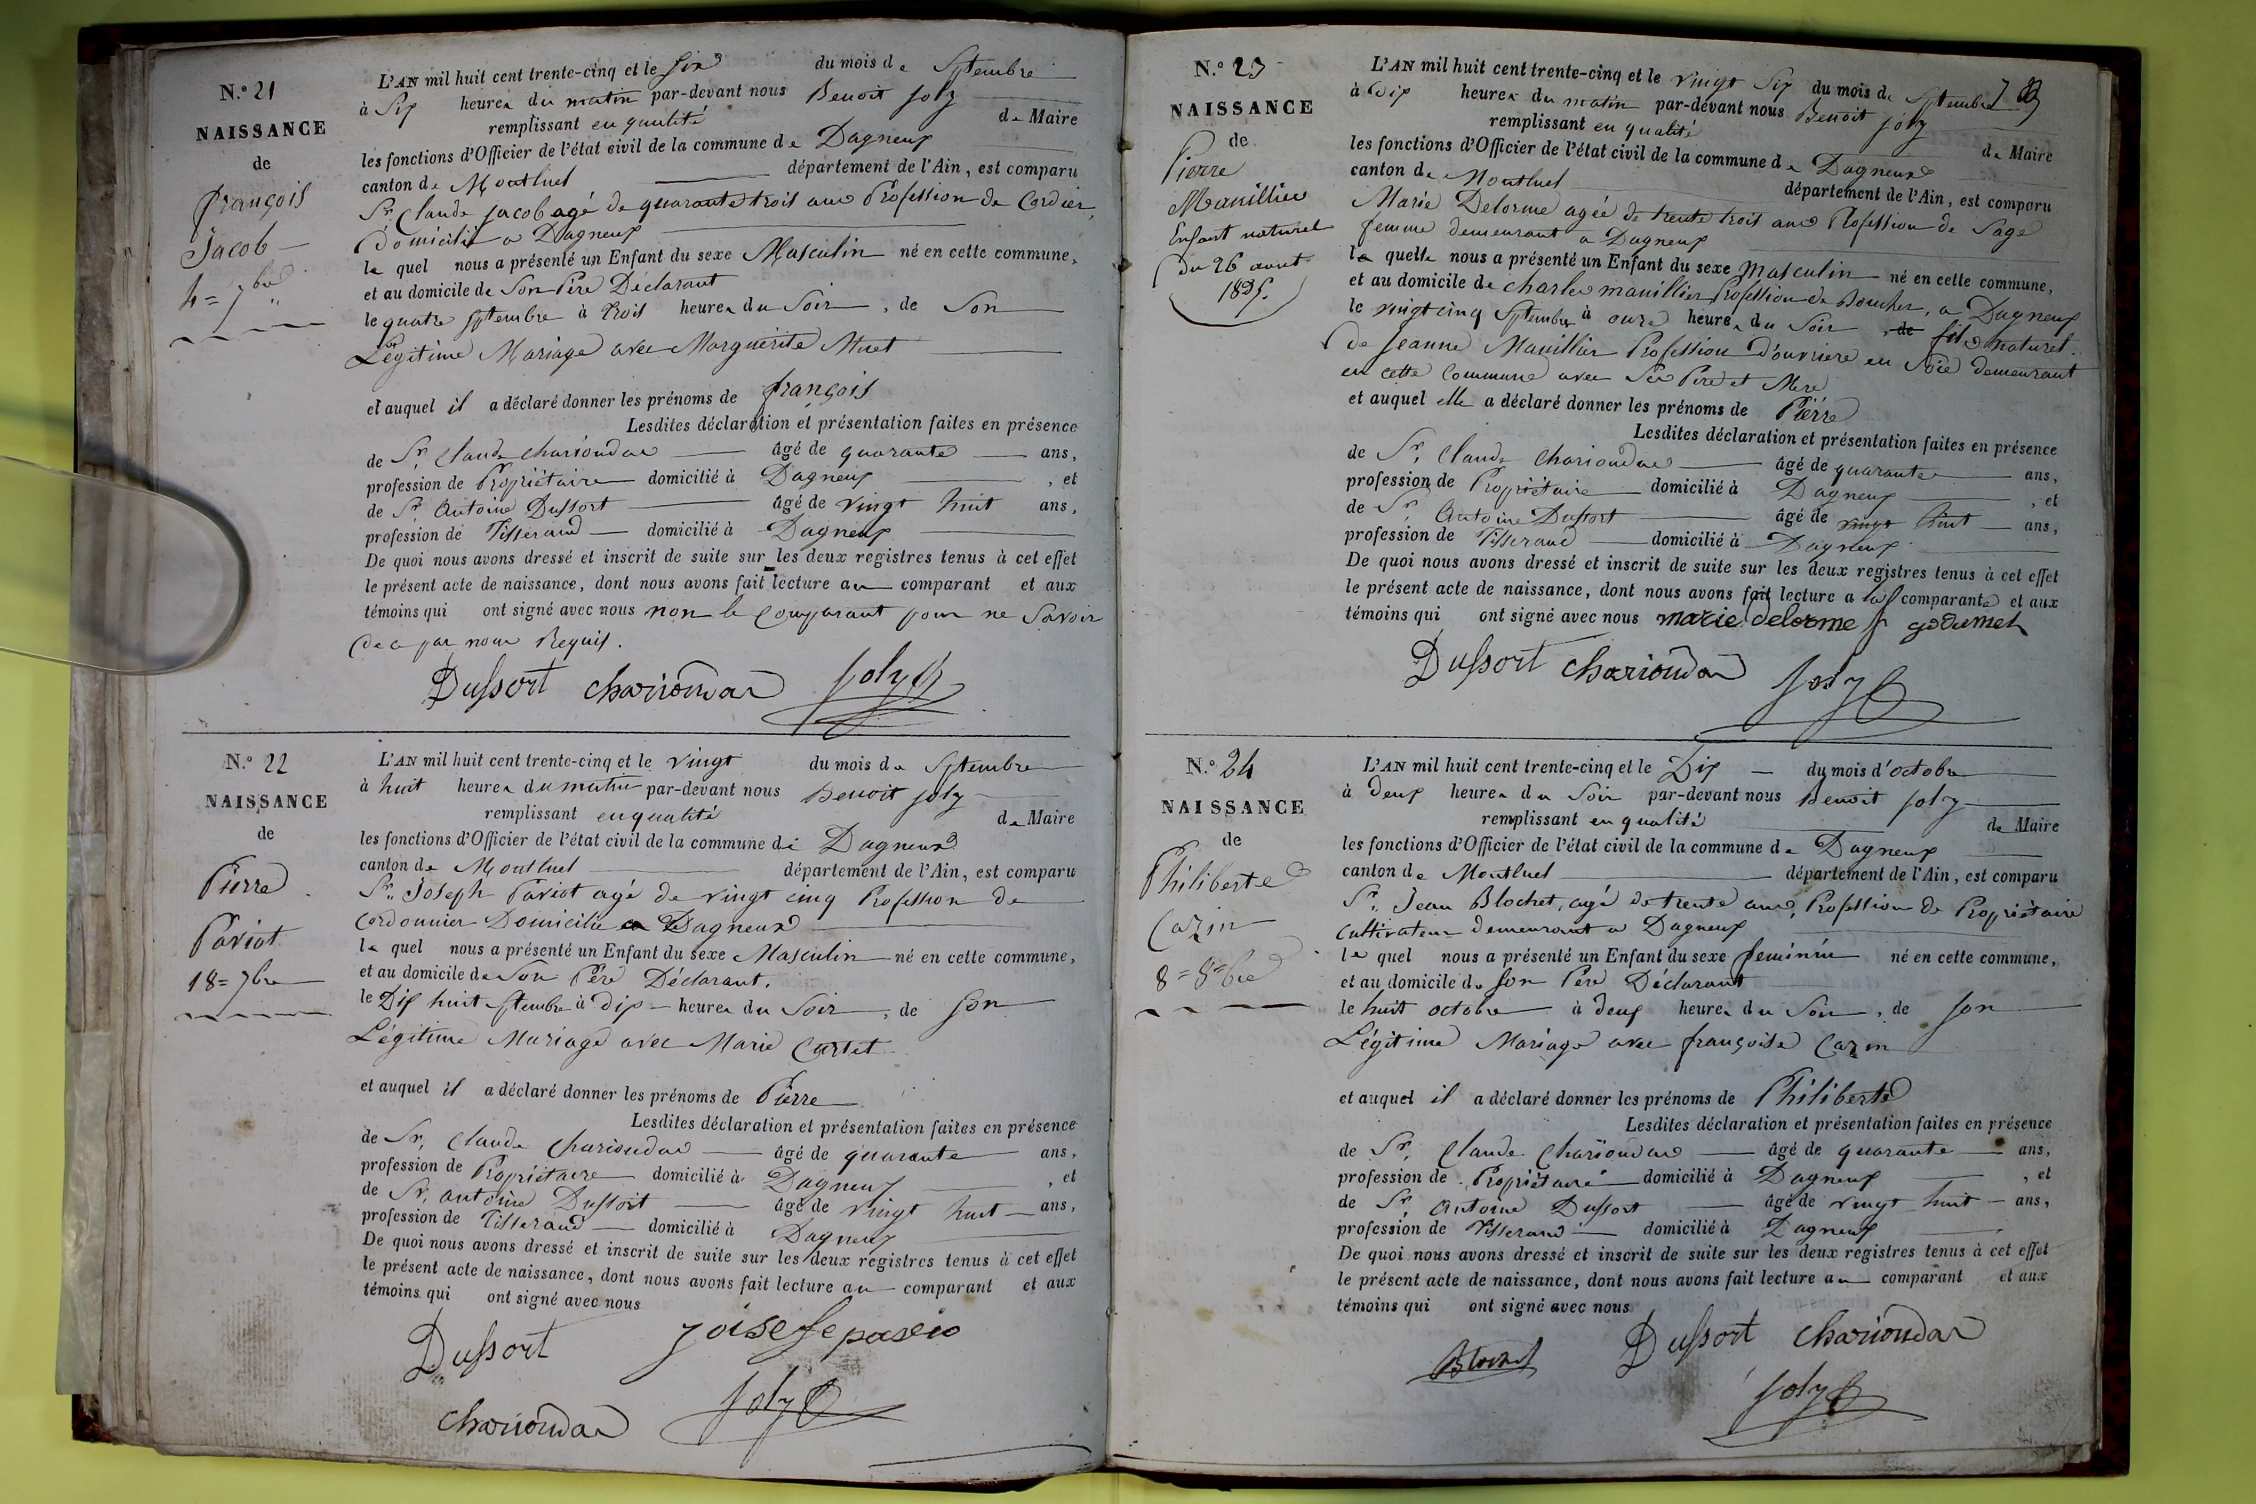 N.° 21
NAISSANCE
de
françois
Jacob
4 = 7bre
L'AN mil huit cent trente-cinq et le six du mois de Septembre
à Six heures du matin par-devant nous Benoit Joly
remplissant en qualité de Maire
les fonctions d'Officier de l'état civil de la commune de Dagneux
canton de Montluel département de l'Ain, est comparu
Sr. Claude Jacob agé de quarante trois ans Profession de Cordier,
domicilié a Dagneux
le quel nous a présenté un Enfant du sexe Masculin né en cette commune,
et au domicile de Son Père Déclarant
le quatre Septembre à trois heures du Soir, de Son
Légitime Mariage avec Marguerite
et auquel il a déclaré donner les prénoms de françois
Lesdites déclaration et présentation faites en présence
de Sr. Claude Charioudas âgé de quarante ans,
profession de Propriétaire domicilié à Dagneux, et
de Sr. Antoine Dussort âgé de vingt huit ans,
profession de Tisserand domicilié à Dagneux
De quoi nous avons dressé et inscrit de suite sur les deux registres tenus à cet effet
le présent acte de naissance, dont nous avons fait lecture au comparant et aux
témoins qui ont signé avec nous non le Comparant pour ne Savoir
de ce par nous Requis.
Dussort Charioudas Joly
N.° 22
NAISSANCE
de
Pierre
Pariot
18 = 7bre
L'AN mil huit cent trente-cinq et le vingt du mois de Septembre
à huit heures du matin par-devant nous Benoit Joly
remplissant en qualité de Maire
les fonctions d'Officier de l'état civil de la commune de Dagneux
canton de Montluel département de l'Ain, est comparu
Sr. Joseph Pariot agé de vingt cinq Profession de
Cordonnier Domicilié a Dagneux
le quel nous a présenté un Enfant du sexe Masculin né en cette commune,
et au domicile de Son Père Déclarant.
le Dix huit Septembre à dix heures du Soir, de Son
Légitime Mariage avec Marie Curtet
et auquel il a déclaré donner les prénoms de Pierre
Lesdites déclaration et présentation faites en présence
de Sr. Claude Charioudas âgé de quarante ans,
profession de Propriétaire domicilié à Dagneux, et
de Sr. antoine Dussort âgé de vingt huit ans,
profession de Tisserand domicilié à Dagneux
De quoi nous avons dressé et inscrit de suite sur les deux registres tenus à cet effet
le présent acte de naissance, dont nous avons fait lecture au comparant et aux
témoins qui ont signé avec nous
Dussort
Charioudas Joly
N.° 23
NAISSANCE
de
Pierre
Manillier
Enfant naturel
du 26 aout
1835.
L'AN mil huit cent trente-cinq et le vingt Six du mois de Septembre
à dix heures du matin par-devant nous Benoit Joly
remplissant en qualité de Maire
les fonctions d'Officier de l'état civil de la commune de Dagneux
canton de Montluel département de l'Ain, est comparu
Marie Delorme agée de trente trois ans Profession de Sage
femme demeurant a Dagneux
la quelle nous a présenté un Enfant du sexe masculin né en cette commune,
et au domicile de charles manillier Profession de Boucher, a Dagneux
le vingt cinq Septembre à onze heures du Soir, de fils naturel
de Jeanne Manillier Profession d'ouvriere en Soie demeurant
en cette Commune avec Ses Pere et Mere
et auquel elle a déclaré donner les prénoms de Pierre
Lesdites déclaration et présentation faites en présence
de Sr. Claude Charioudas âgé de quarante ans,
profession de Propriétaire domicilié à Dagneux, et
de Sr. Antoine Dussort âgé de vingt huit ans,
profession de Tisserand domicilié à Dagneux
De quoi nous avons dressé et inscrit de suite sur les deux registres tenus à cet effet
le présent acte de naissance, dont nous avons fait lecture a la comparante et aux
témoins qui ont signé avec nous marie delorme f godemet
Dussort Charioudas Joly
N.° 24
NAISSANCE
de
Philiberte
Cazin
8 = 8bre
L'AN mil huit cent trente-cinq et le Dix du mois d'octobre
à deux heures du Soir par-devant nous Benoit Joly
remplissant en qualité de Maire
les fonctions d'Officier de l'état civil de la commune de Dagneux
canton de Montluel département de l'Ain, est comparu
Sr. Jean Blochet, agé de trente ans, Profession de Propriétaire
Cultivateur demeurant a Dagneux
le quel nous a présenté un Enfant du sexe feminin né en cette commune,
et au domicile de Son Père Déclarant
le huit octobre à deux heures du Soir, de Son
Légitime Mariage avec françoise Cazin
et auquel il a déclaré donner les prénoms de Philiberte
Lesdites déclaration et présentation faites en présence
de Sr. Claude Charioudas âgé de quarante ans,
profession de Propriétaire domicilié à Dagneux, et
de Sr. Antoine Dussort âgé de vingt huit ans,
profession de Tisserand domicilié à Dagneux
De quoi nous avons dressé et inscrit de suite sur les deux registres tenus à cet effet
le présent acte de naissance, dont nous avons fait lecture au comparant et aux
témoins qui ont signé avec nous
Blochet Dussort Charioudas
Joly